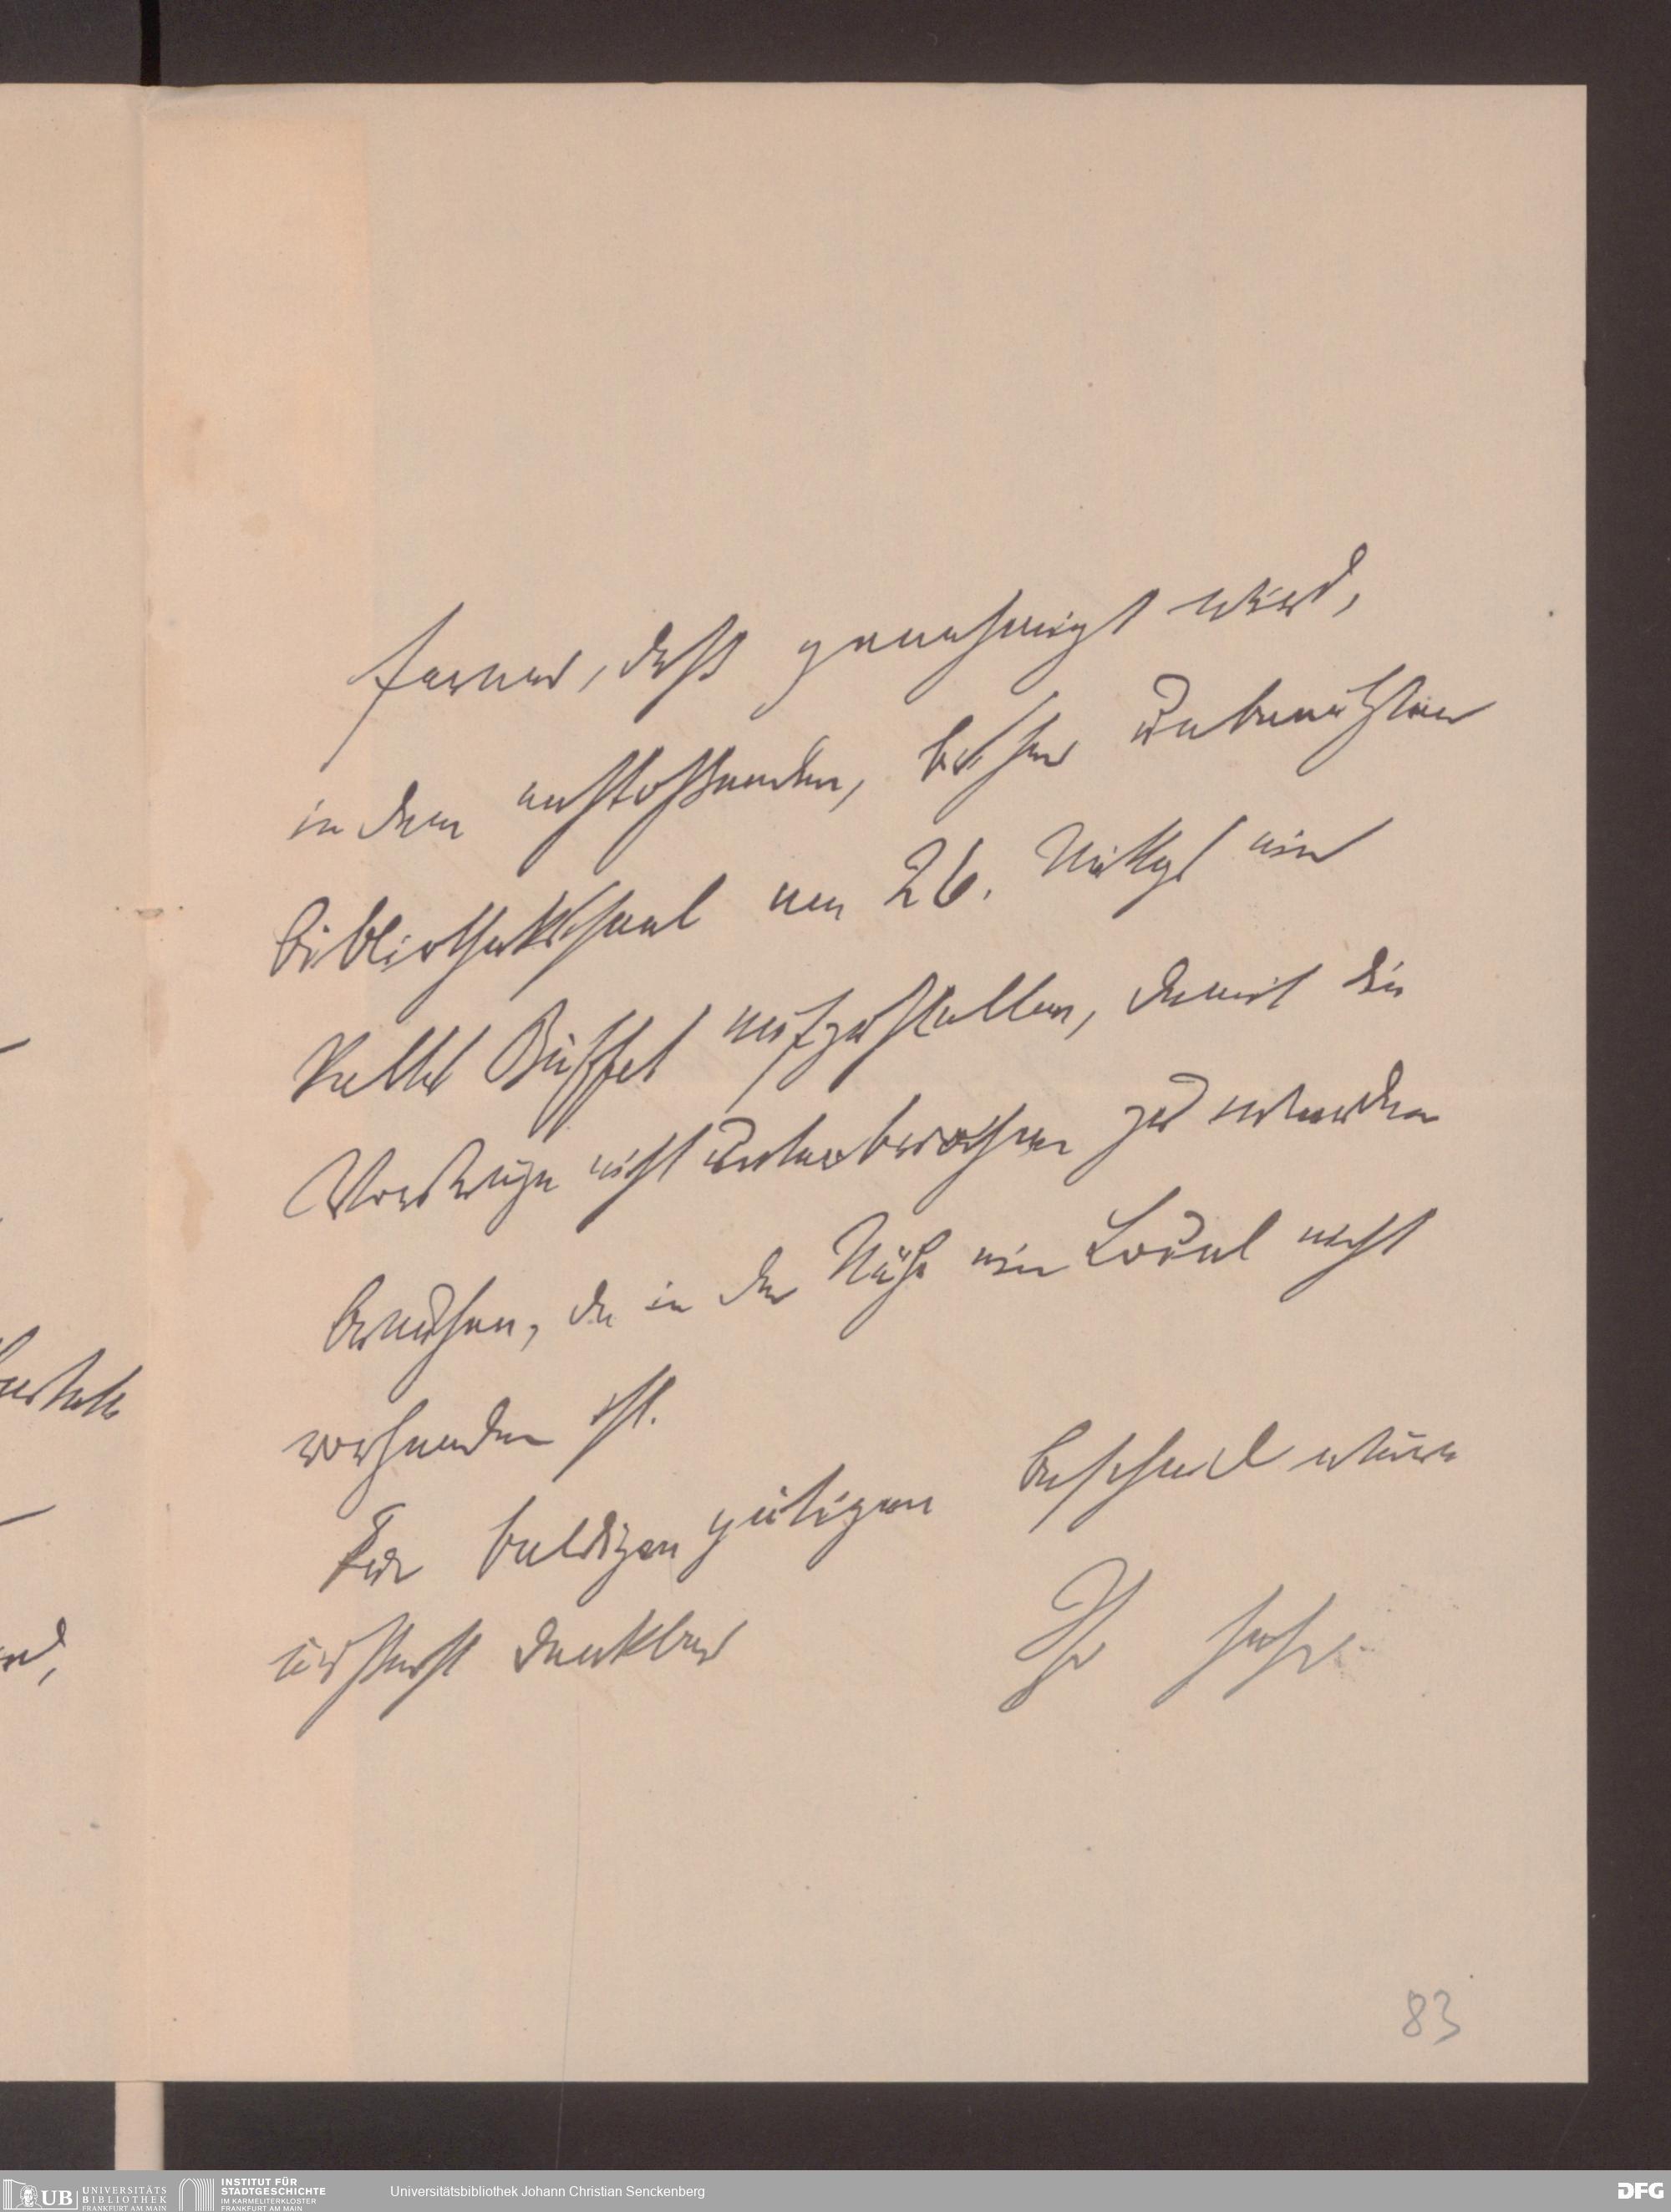 ferner, daß genehmigt wird,
in dem anstoßenden, bisher unbenützten
Bibliotheksaal am 26. Mittgs ein
kaltes Büffet aufzustellen, damit die
Vorträge nicht unterbrochen zu werden
brauchen, da in der Nähe ein Local nicht
vorhanden ist.
Für baldigen gütigen Bescheid wäre
äußerst dankbar
Ihr sehr
83
UB UNIVERSITÄTS BIBLIOTHEK FRANKFURT AM MAIN
INSTITUT FÜR STADTGESCHICHTE IM KARMELITERKLOSTER FRANKFURT AM MAIN
Universitätsbibliothek Johann Christian Senckenberg
DFG